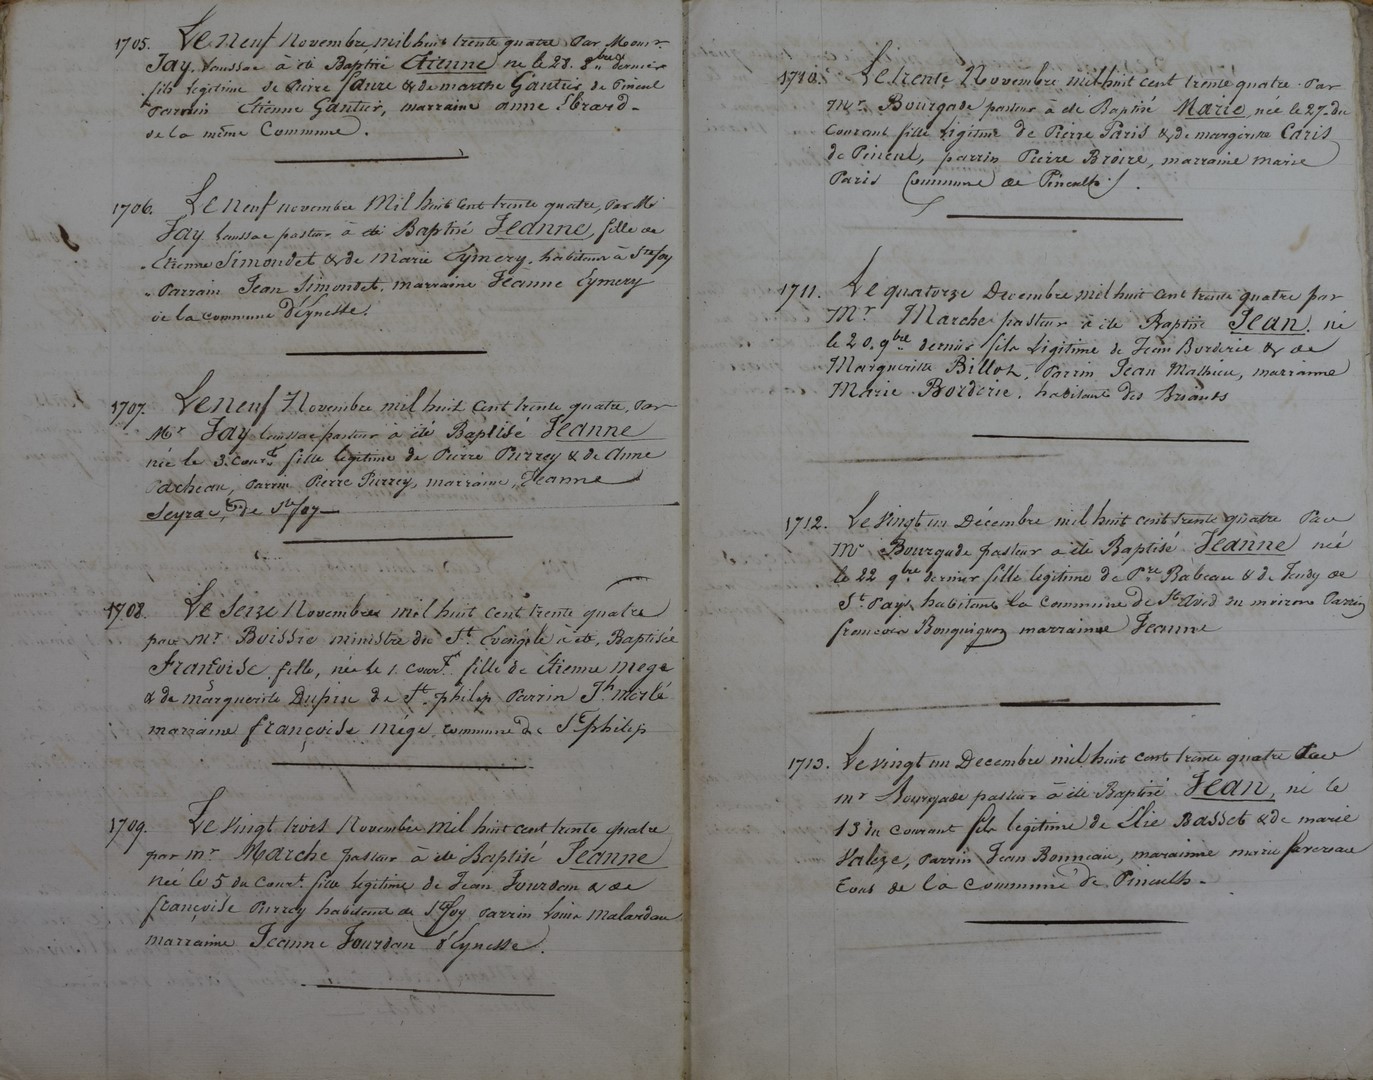 1705. Le Neuf Novembre, mil huit trente quatre Par Monsr.
Jay, Laussac à été Baptisé Etienne né le 28. 8bre dernier
fils legitime de Pierre Faure & de marthe Gautier, de Pineul
Parrain Etienne Gautier, marraine anne
de la même Commune.
1706. Le Neuf novembre Mil huit cent trente quatre, Par Mr
Jay Laussac pasteur à été Baptisé Jeanne, fille de
Etienne Simondet & de Marie Eymery, habitans à Ste foy
Parrain Jean Simondet, marraine Jeanne Eymery
de la commune d'Eynesse.
1707. Le neuf Novembre mil huit Cent trente quatre, Par
Mr Jay Laussac pasteur à été Baptisé Jeanne
née le 3. Court. fille legitime de Pierre Purrey & de Anne
Pacheau, Parrin Pierre Purrey, marraine, Jeanne
Seyrac, de Ste foy
1708. Le Seize Novembre mil huit cent trente quatre
par Mr. Boissie ministre du St. Evangile à été, Baptisée
Françoise, fille, née le 1. Court. fille de Etienne mege
& de marguerite Dupin de St. philip Parrin Jh. merlé
marraine françoise Mége, commune de St philip
1709. Le vingt trois Novembre mil huit cent trente quatre
par mr Marche pasteur à été Baptisé Jeanne
née le 5 du Court. fille legitime de Jean Jourdan & de
françoise Purrey habitant de Ste foy Parrin Louis Malardeau
marraine Jeanne Jourdan d'Eynesse.
1710. Le trente Novembre mil huit cent trente quatre. Par
Mr. Bourgade pasteur à été Baptisé Marie, née le 27. du
Courant fille Legitime de Pierre Paris & de margueritte Caris
de Pineul, parrin Pierre Broire, marraine marie
Paris Commune de Pineulh.
1711. Le quatorze Decembre mil huit cent trente quatre par
Mr. Marche pasteur à été Baptisé Jean, né
le 20. 9bre dernier fils Légitime de Jean Borderie & de
Margueritte Billot, Parrin Jean Mathieu, marrainne
Marie Borderie, habitant des Briants
1712. Le vingt un Décembre mil huit cent trente quatre Par
Mr Bourgade pasteur à été Baptisé Jeanne née
le 22 9bre dernier fille legitime de Pre Babeau & de de
St. Pays habitans la commune de St Avid du moiron Parrin
françois marrainne Jeanne
1713. Le vingt un Decembre mil huit cent trente quatre Par
mr Bourgade pasteur à été Baptisé Jean, né le
13 du courant fils legitime de Elie Basset & de marie
Valeze, Parrin Jean Bonneau, maraine marie favereau
tous de la commune de Pineulh.